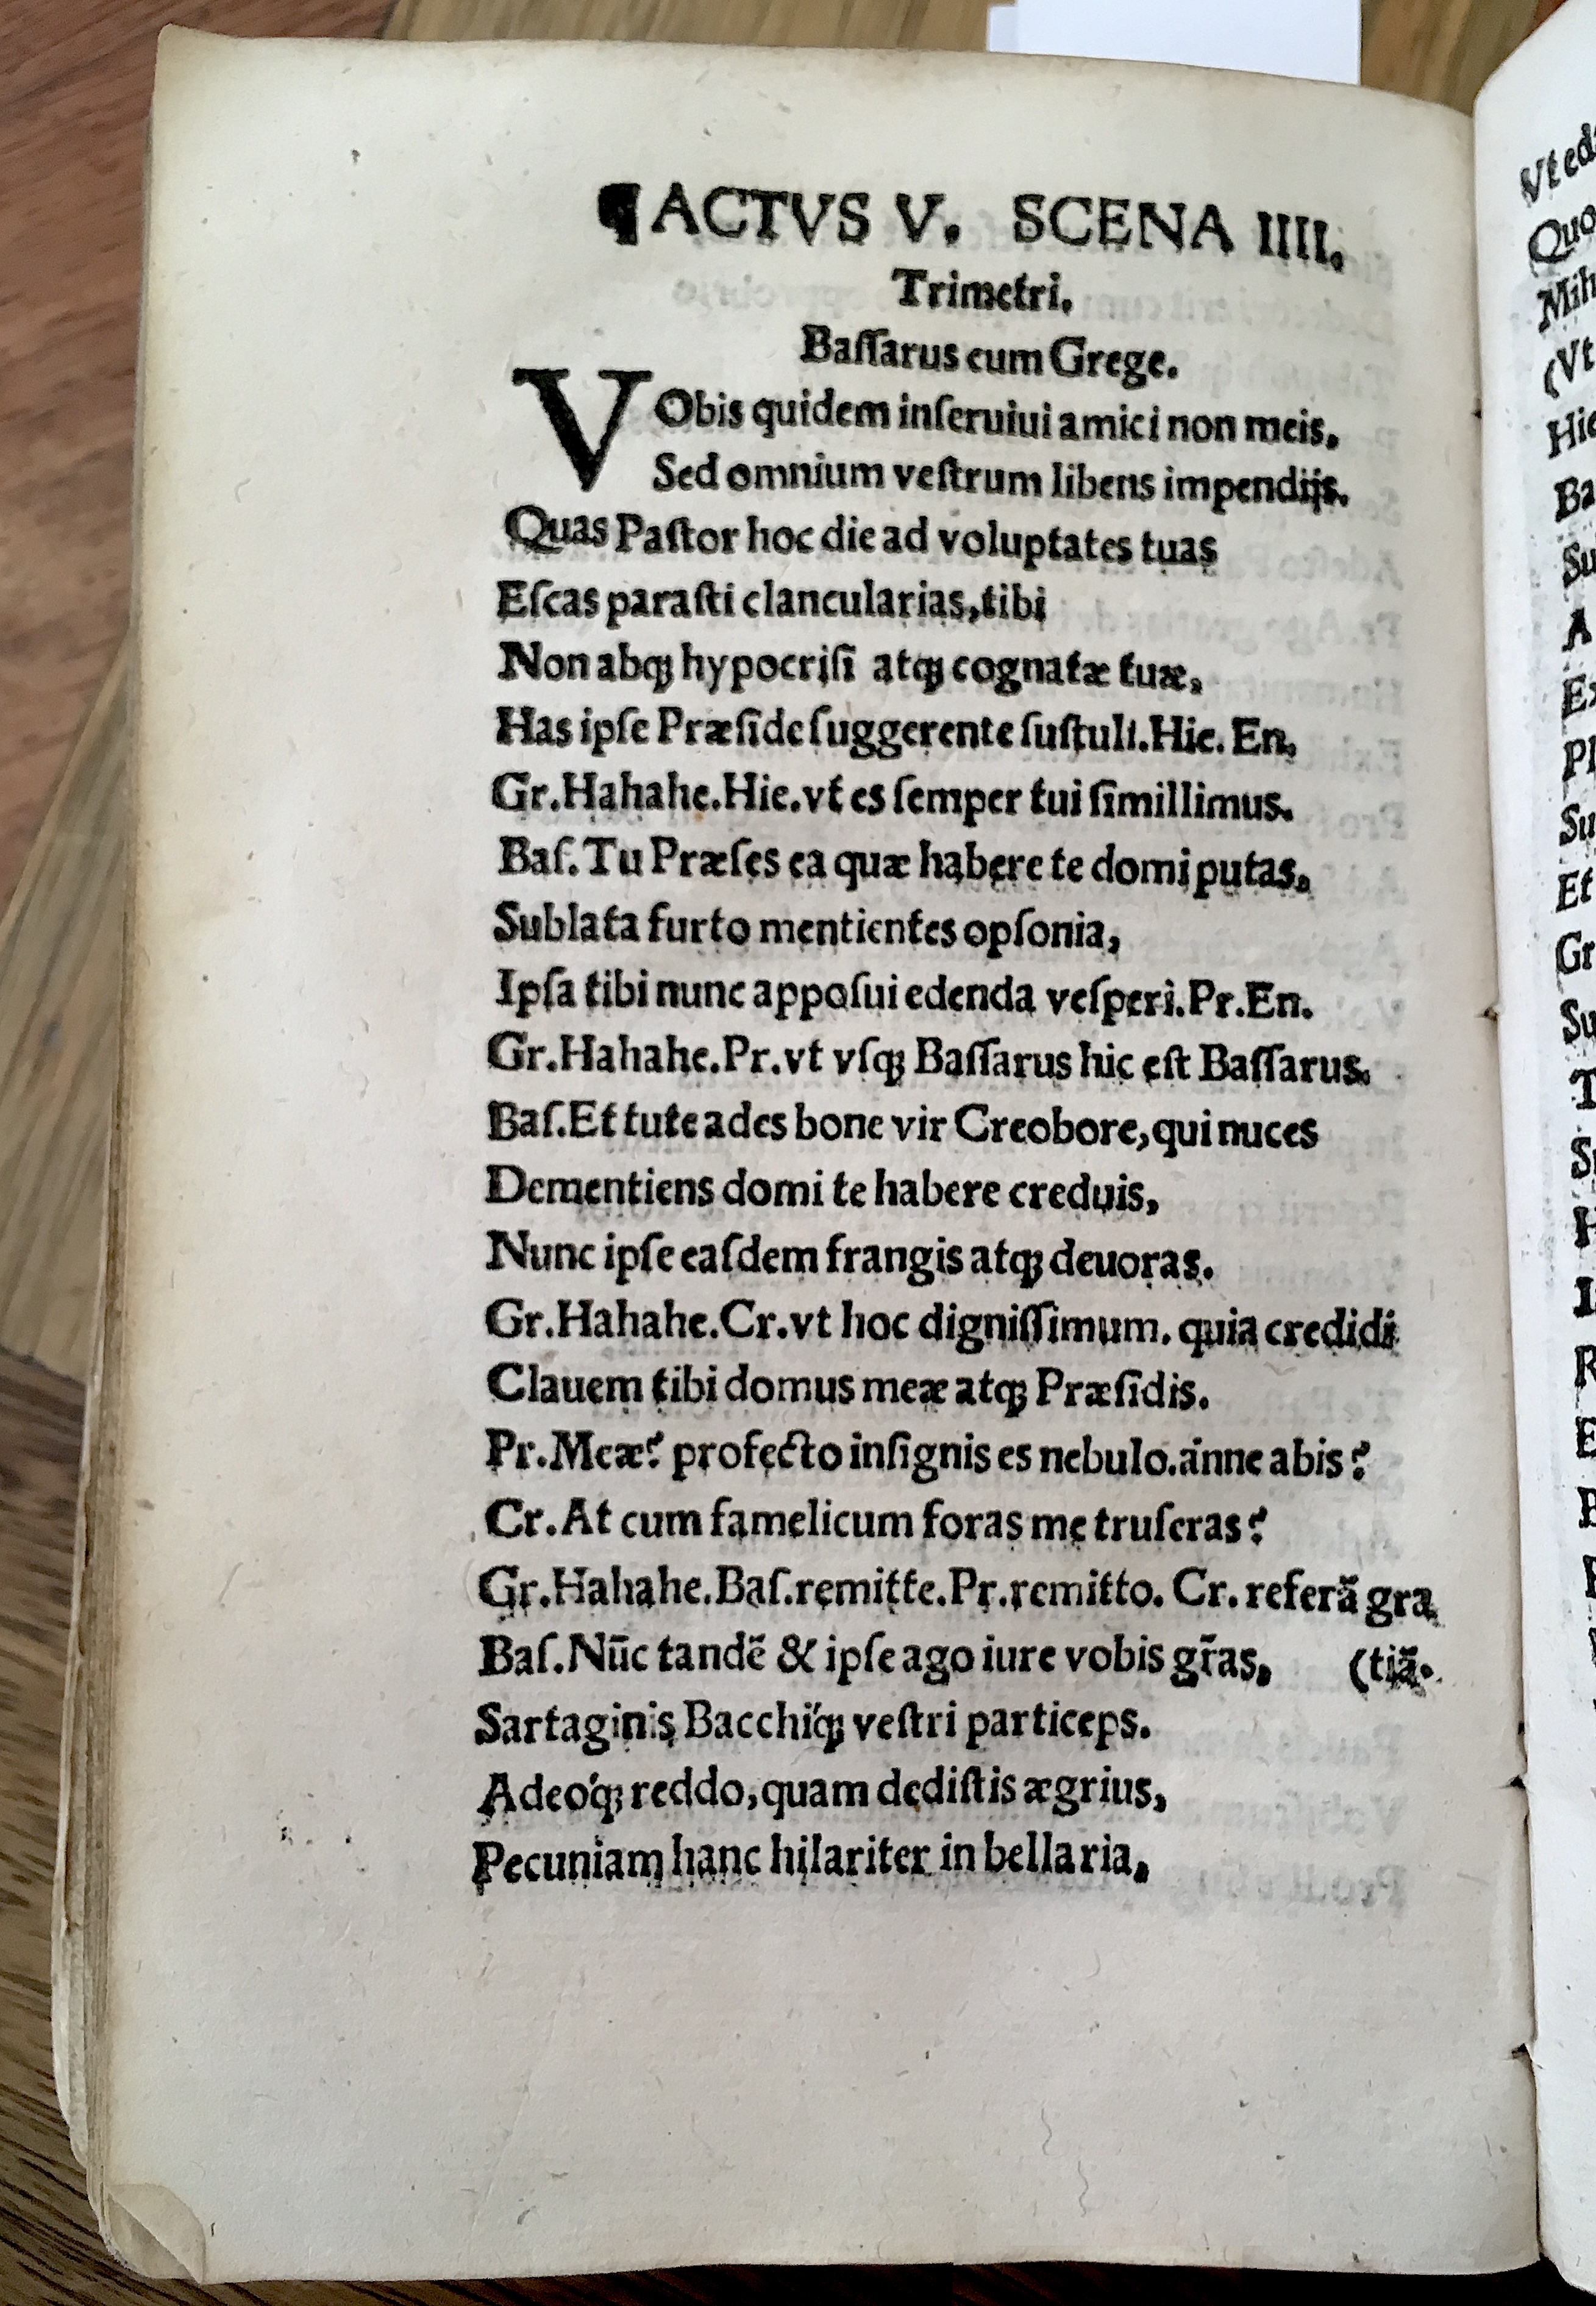 ¶ACTVS V. SCENA IIII.
Trimetri.
Baſſarus cum Grege.
VObis quidem inſeruiui amici non meis.
Sed omnium veſtrum libens impendijs.
Quas Paſtor hoc die ad voluptates tuas
Eſcas paraſti clancularias, tibi
Non abqꝫ hypocriſi atqꝫ cognatæ tuæ,
Has ipſe Præſide ſuggerente ſuſtuli. Hie. En,
Gr. Hahahe. Hie. vt es ſemper tui ſimillimus.
Baſ. Tu Præſes ea quæ habere te domi putas,
Sublata furto mentientes opſonia,
Ipſa tibi nunc appoſui edenda veſperi. Pr. En.
Gr. Hahahe. Pr. vt vſqꝫ Baſſarus hic eſt Baſſarus.
Baſ. Et tute ades bone vir Creobore, qui nuces
Dementiens domi te habere creduis,
Nunc ipſe eaſdem frangis atqꝫ deuoras.
Gr. Hahahe. Cr. vt hoc digniſſimum. quia credidi
Clauem tibi domus meæ atqꝫ Præſidis.
Pr. Meæ? profecto inſignis es nebulo. anne abis?
Cr. At cum famelicum foras me truſeras?
Gr. Hahahe. Baſ. remitte. Pr. remitto. Cr. referā gra
Baſ. Nūc tandē & ipſe ago iure vobis gr̄as, (tiā.
Sartaginis Bacchiq́ꝫ veſtri particeps.
Adeoq́ꝫ reddo, quam dediſtis ægrius,
Pecuniam hanc hilariter in bellaria,
Vt ed
Quo
Mih
(Vt
Hie
Ba
Su
A
Pl
Su
Et
Gr
Su